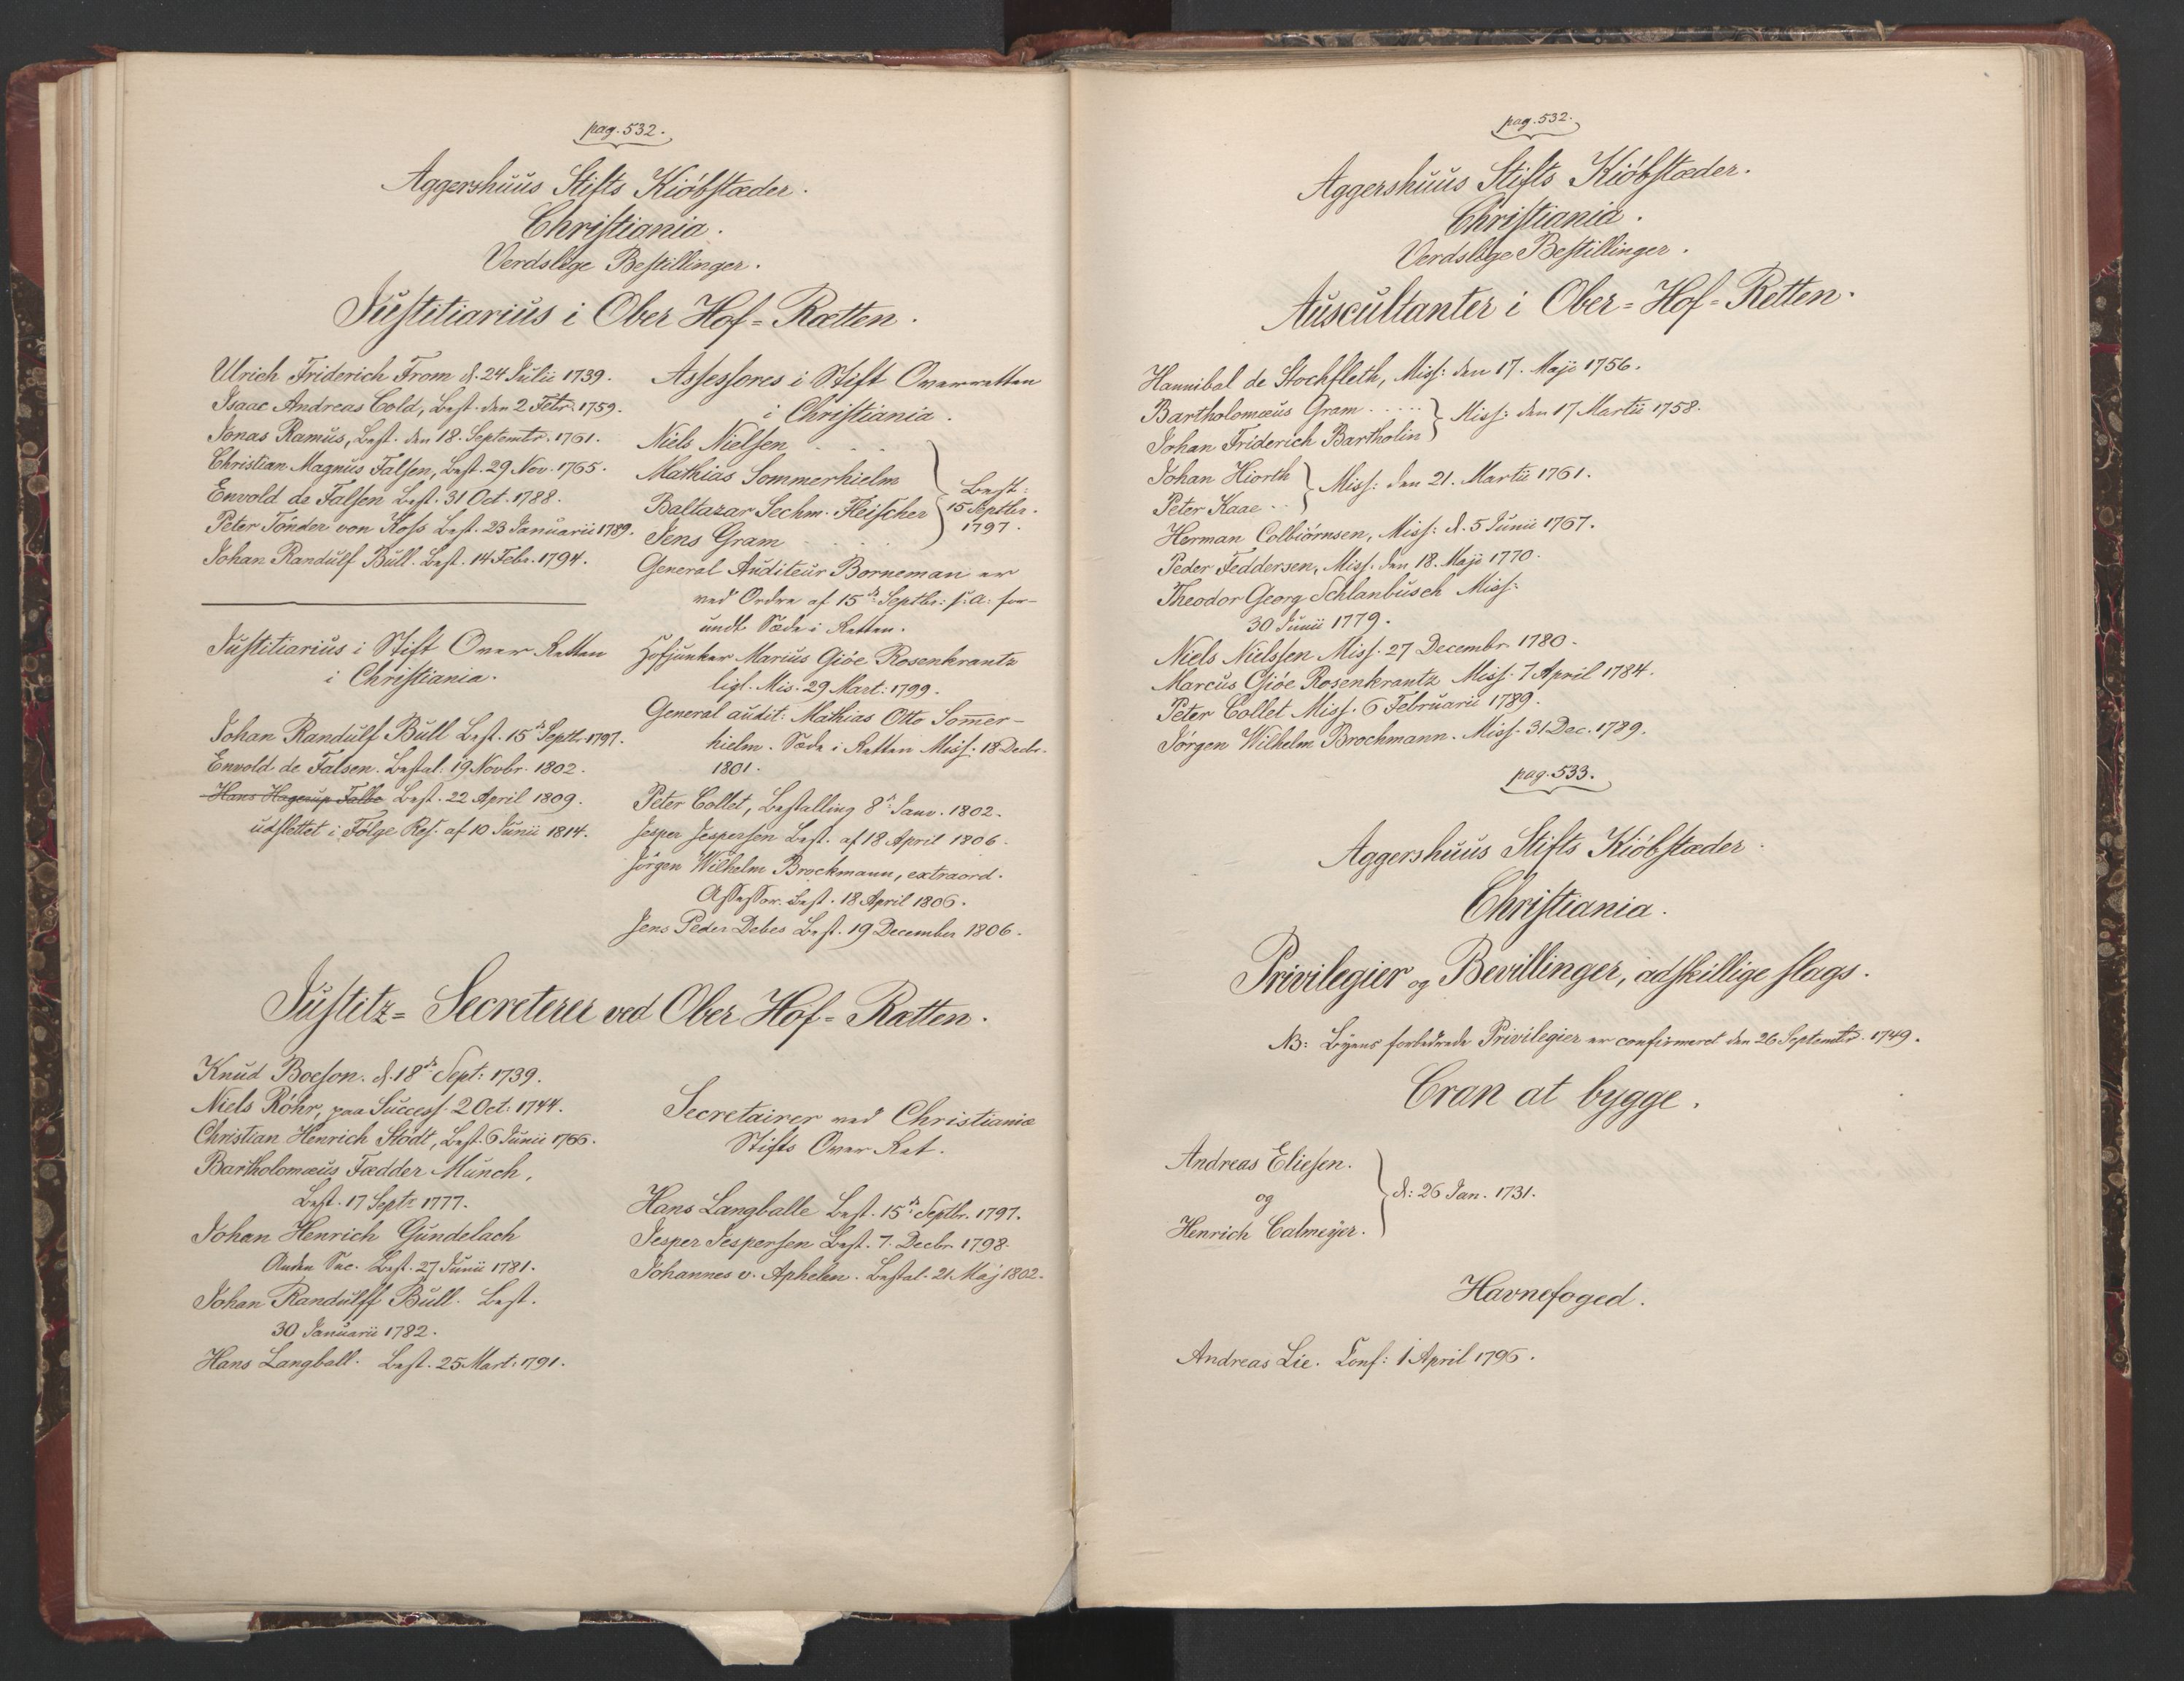 pag. 532.
Aggershuus Stifts Kiöbstæder.
Christiania.
Verdslige Bestillinger.
Justitiarius i Ober Hof=Rætten.
Ulrich Friderich From d. 24 Julii 1739.
Isaac Andreas Cold, Best. den 2 Febr. 1759.
Jonas Ramus, Best. den 18. Septembr. 1761.
Christian Magnus Falsen, Best. 29 Nov. 1765.
Envold de Falsen Best. 31 Oct. 1788.
Peter Tönder von Koss Best. 23 Januarii 1789.
Johan Randulf Bull. Best. 14 Febr. 1794.
Justitiarius i Stift Over Retten
i Christiania.
Johan Randulf Bull Best. 15de Septbr 1797.
Envold de Falsen. Bestal: 19 Novbr. 1802.
Hans Hagerup Falbe Best. 22 April 1809.
udslettet i Følge Res. af 10 Junii 1814.
Assessores i Stift Overretten
i Christiania.
Niels Nielsen . . .
Mathias Sommerhielm
Baltazar Sechm. Fleischer
Jens Gram . . . .
Best:
15 Septbr.
1797.
General Auditeur Borneman er
ved Ordre af 15de Septbr: s: a: for-
undt Sæde i Retten.
Hofjunker Marius Giöe Rosenkrantz
ligl. Mis. 29 Mart: 1799.
General audit: Mathias Otto Somer-
hielm. Sæde i Retten Miss. 18 Decbr.
1801.
Peter Collet, Bestalling 8de Janv. 1802.
Jesper Jespersen Best. af 18 April 1806.
Jörgen Wilhelm Brockmann, extraord.
Assessor. Best. 18 April 1806.
Jens Peder Debes Best. 19 December 1806.
Justitz=Secreterer ved Ober Hof=Rætten.
Knud Boeson. d. 18de Sept: 1739.
Niels Röhr, paa Success. 2 Oct: 1744.
Christian Henrich Stodt, Best. 6 Junii 1766.
Bartholomæus Fædder Munch,
Best. 17 Septr 1777.
Johan Henrich Gundelach
Anden Sec. Best. 27 Junii 1781.
Johan Randulff Bull. Best.
30 Januarii 1782.
Hans Langball. Best. 25 Mart. 1791.
Secretairer ved Christiania
Stifts Over Ret.
Hans Langballe Best. 15de Septbr. 1797.
Jesper Jespersen Best. 7. Decbr 1798.
Johannes v. Aphelen. Bestal. 21 Maj 1802.
pag. 532.
Aggershuus Stifts Kiöbstæder.
Christiania.
Verdslige Bestillinger.
Auscultanter i Ober=Hof=Retten.
Hannibal de Stochfleth, Miss: den 17. Maji 1756.
Bartholomæus Gram . . . . .
Johan Friderich Bartholin
Miss: den 17 Martii 1758.
Johan Hiorth
Peter Kaae . .
Miss: den 21. Martii 1761.
Herman Colbiörnsen, Miss: d. 5 Junii 1767.
Peder Feddersen, Miss. den 18. Maji 1770.
Theodor Georg Schlanbusch Miss:
30 Junii 1779.
Niels Nielssen Miss. 27 Decembr. 1780.
Marcus Giöe Rosenkrantz Miss. 7 April 1784.
Peter Collet Miss. 6 Februarii 1789.
Jörgen Wilhelm Brochmann. Miss. 31 Dec. 1789.
pag. 533.
Aggershuus Stifts Kiöbstæder.
Christiania.
Privilegier og Bevillinger, adskillige slags.
NB: Byens forbedrede Privilegier er confirmeret den 26 Septembr. 1749.
Cran at bygge.
Andreas Eliesen.
og
Henrich Calmeyer.
d: 26 Jan. 1731.
Havnefoged.
Andreas Lie. Conf: 1 April 1796.